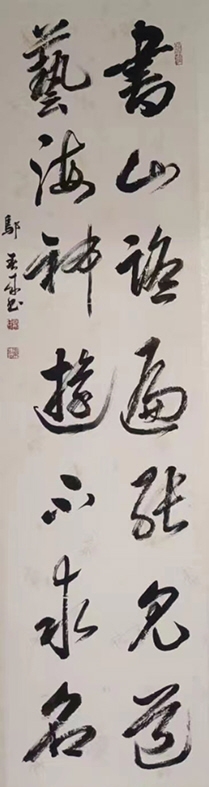 書山遍能見道
藝海神遊不求名
書